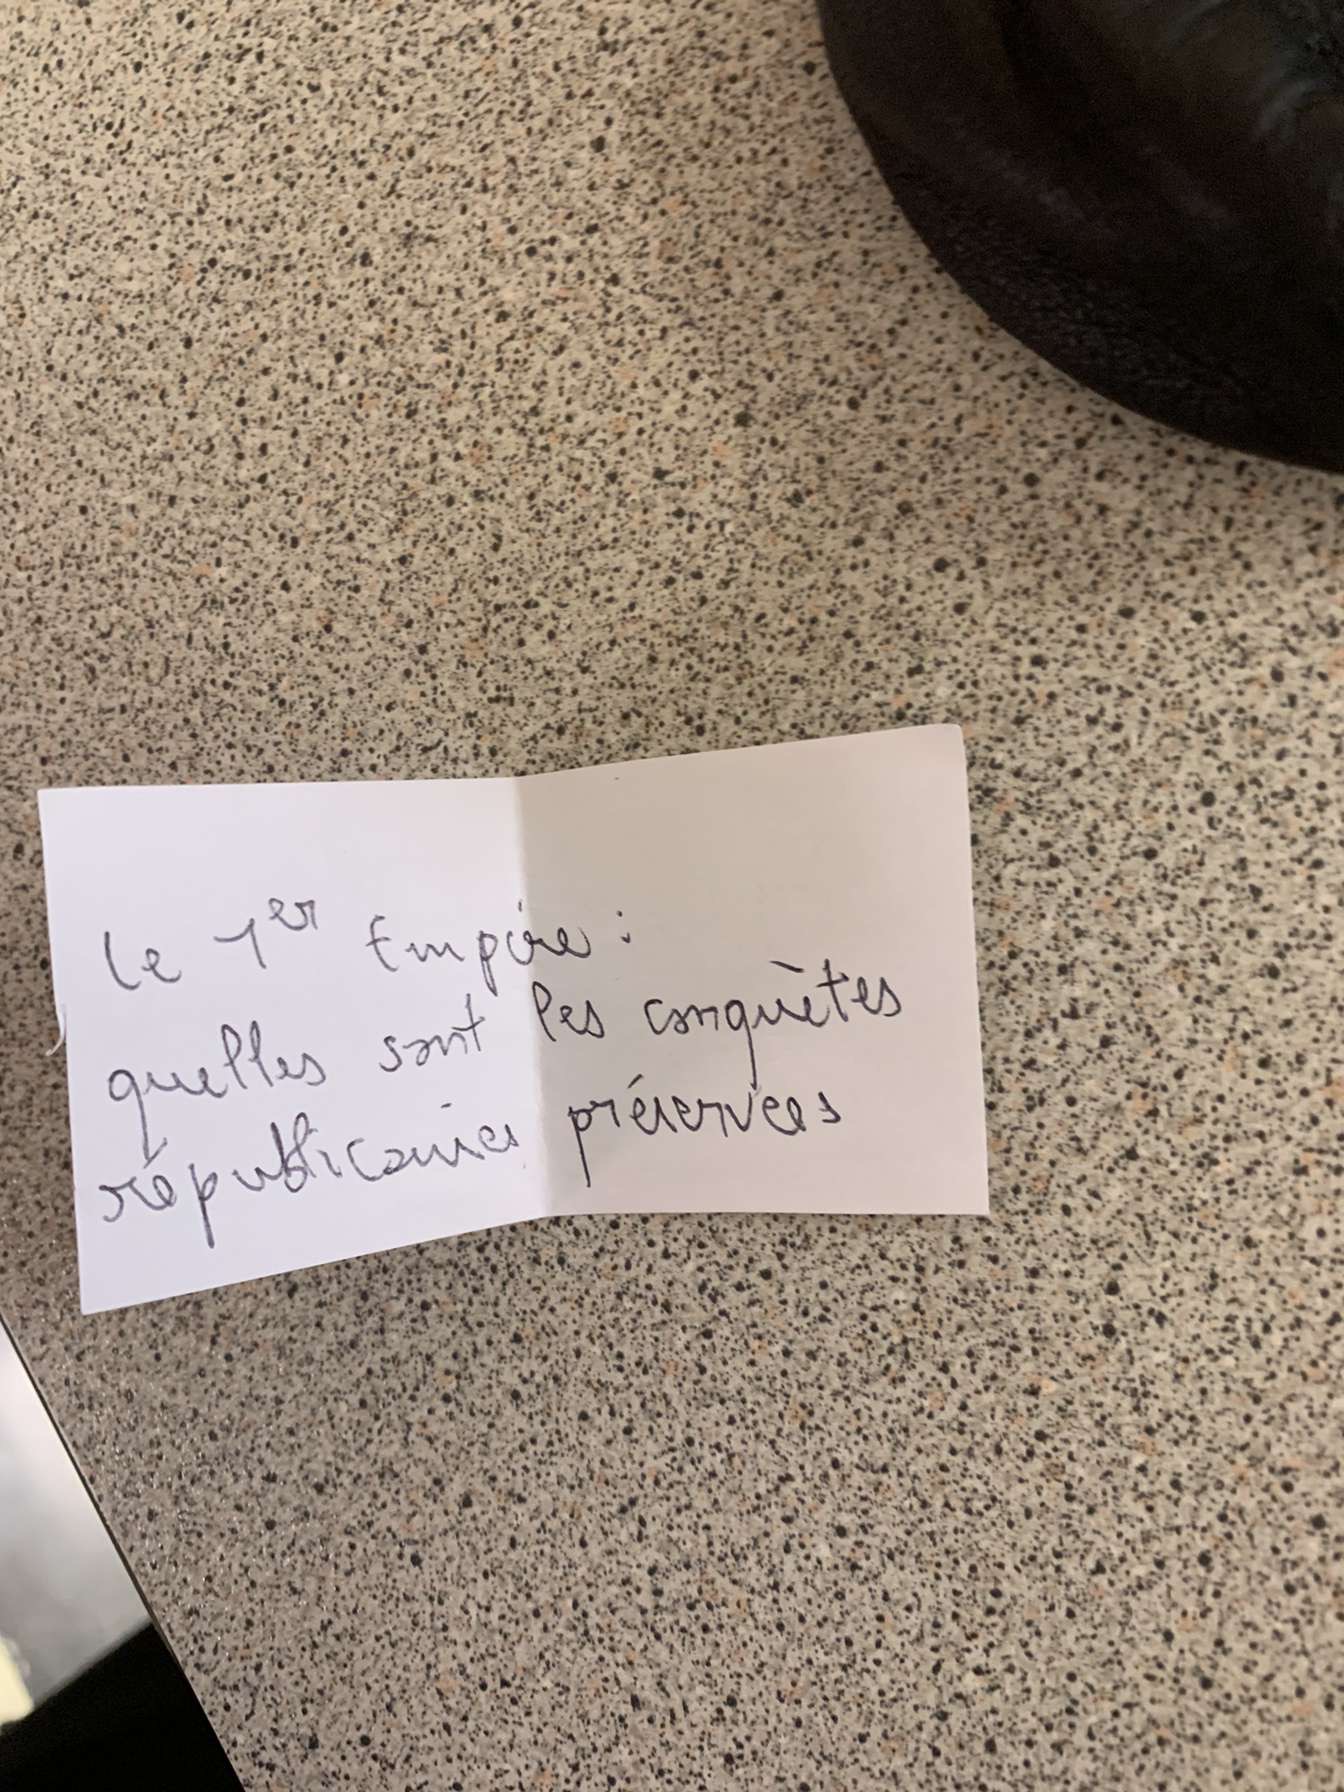 le 1er Empire :
quelles sont les conquètes
républicaines préservées